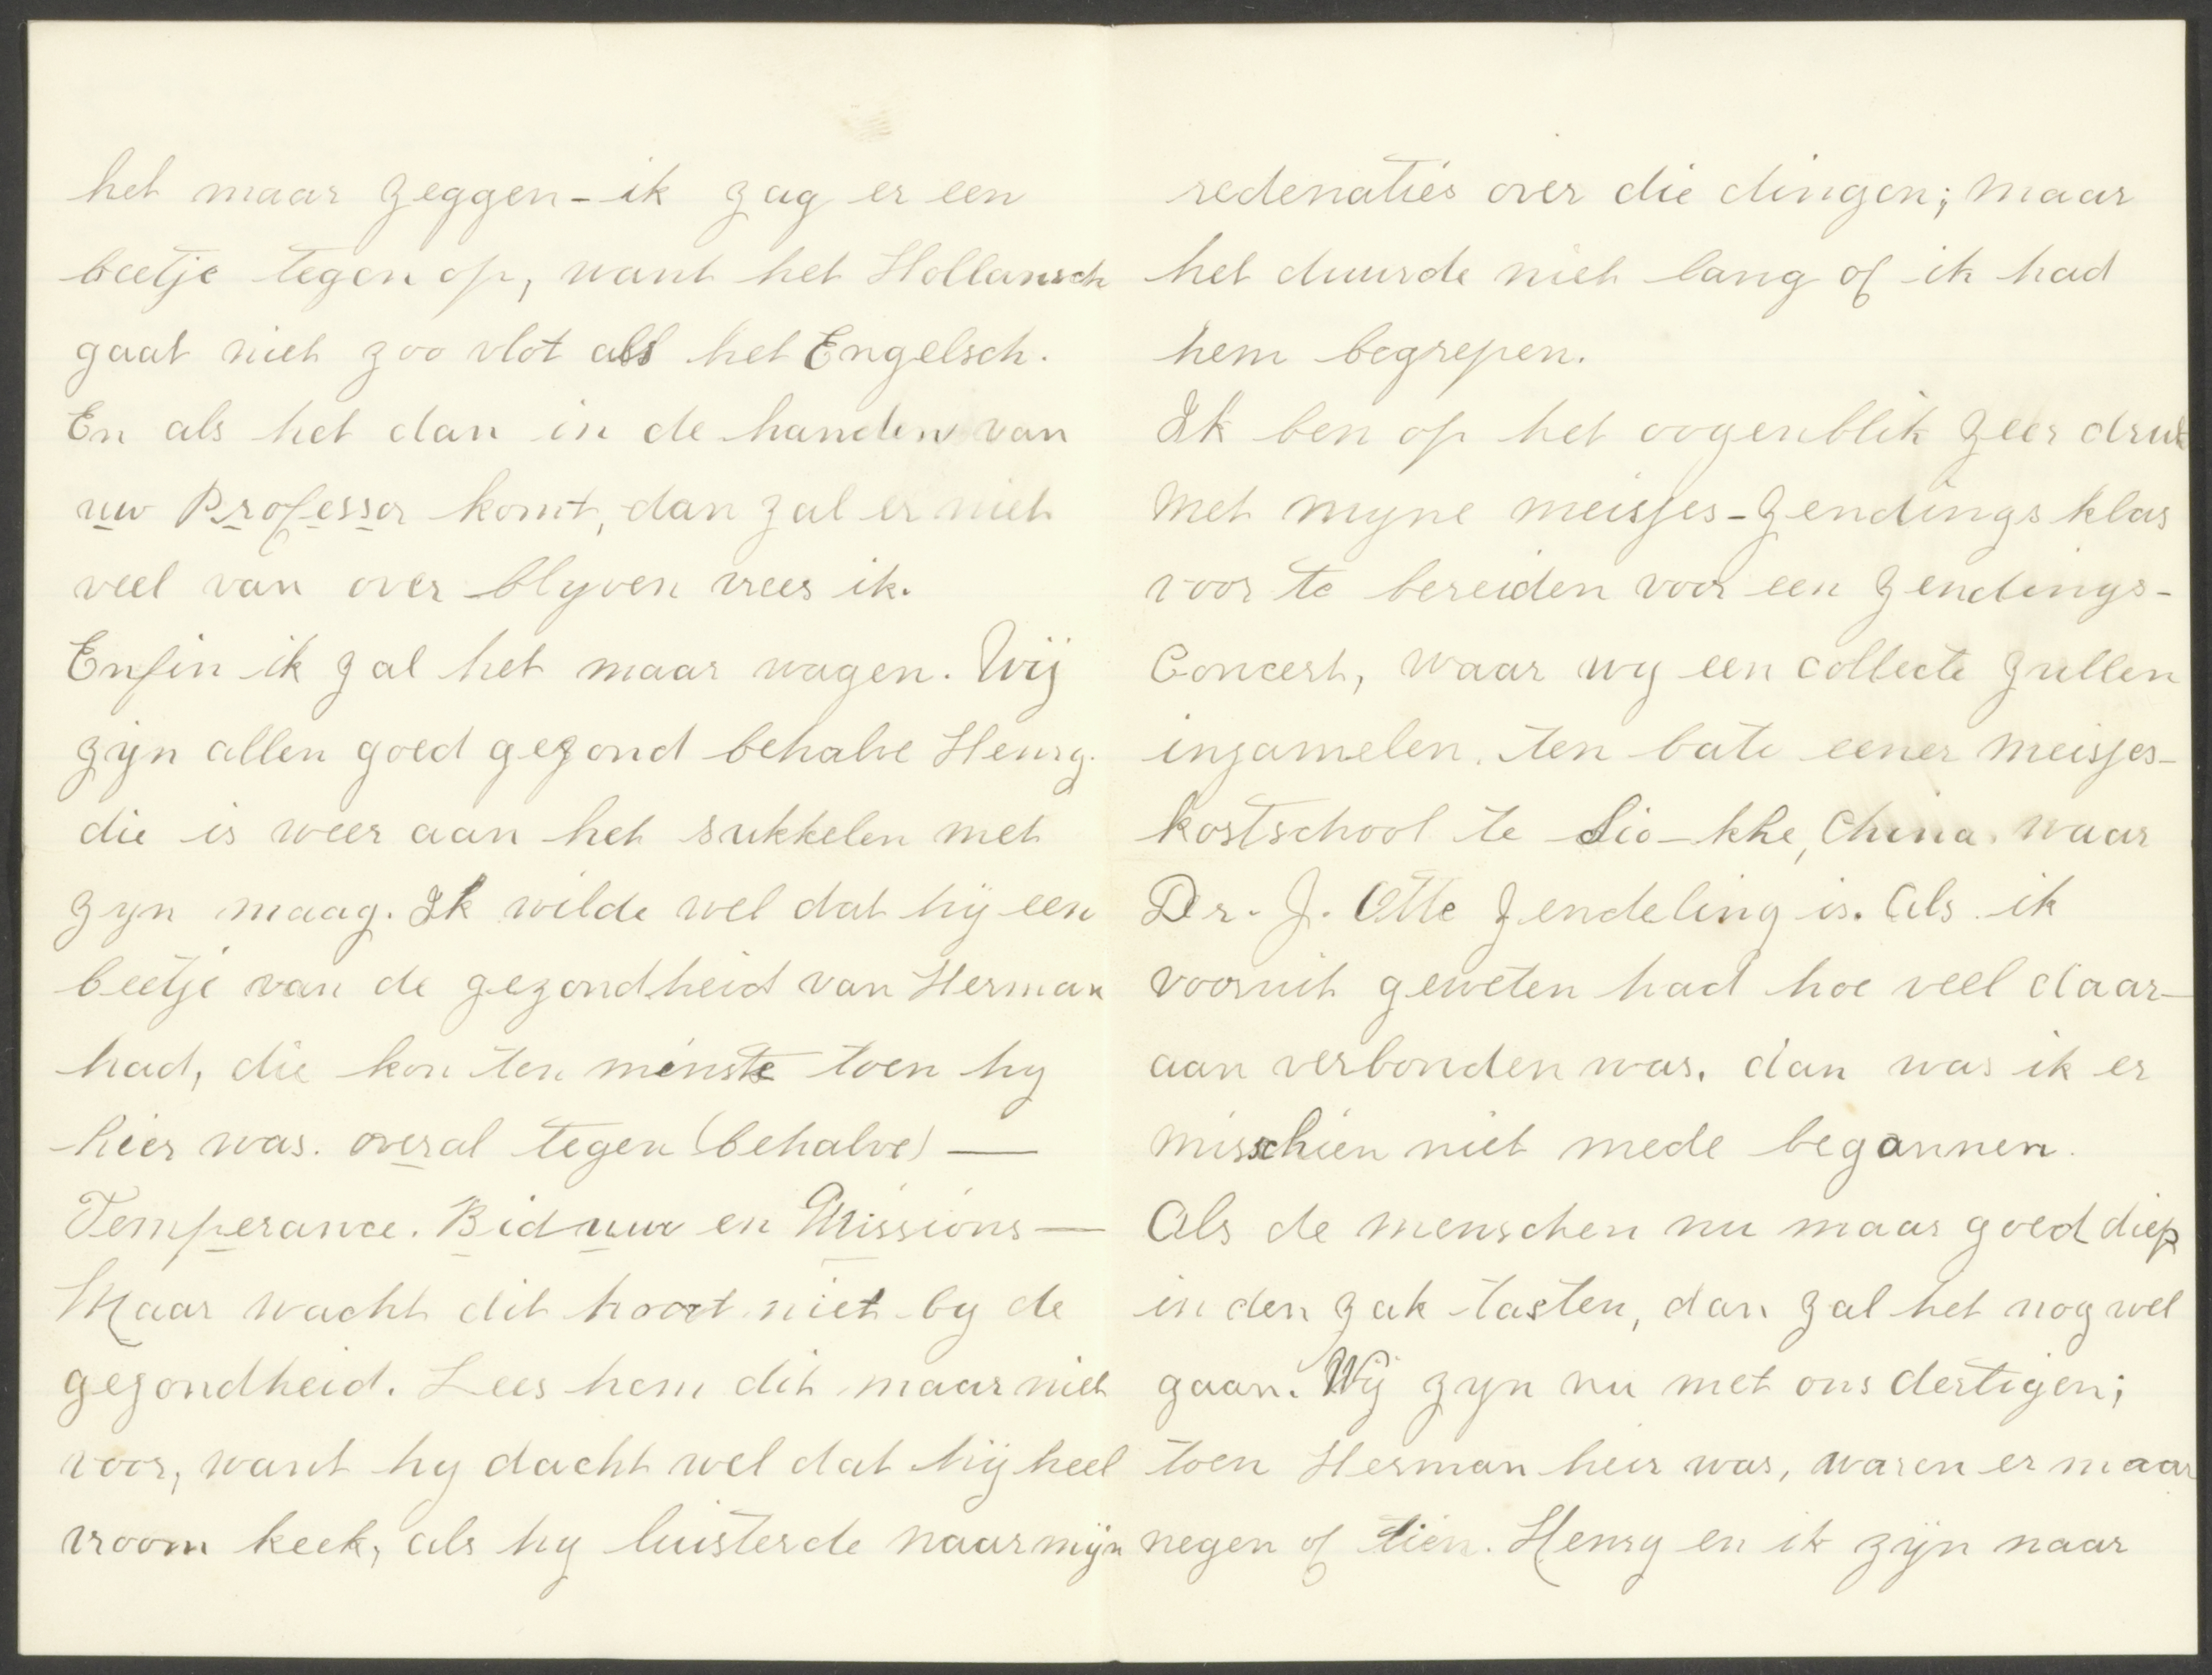 het maar zeggen - ik zag er een
beetje tegen op, want het Hollansch
gaat niet zoo vlot als het Engelsch.
En als het dan in de handen van
uw Professor komt, dan zal er niet
veel van over blyven vrees ik.
Enfin ik zal het maar wagen. Wij
zyn allen goed gezond behalve Henry.
die is weer aan het sukkelen met
zyn maag. Ik wilde wel dat hij een
beetje van de gezondheid van Herman
had, die kon ten minste toen hy
hier was. overal tegen (behalve) —
Temperance. Biduur en Missions —
Maar wacht dit hoort niet by de
gezondheid. Lees hem dit maar niet
voor, want hy dacht wel dat hij heel
vroom keek, als hy luisterde naar mijn
redenaties over die dingen; maar
het duurde niet lang of ik had
hem begrepen.
Ik ben op het oogenblik zeer druk
met myne meisjes-zendings klas
voor te bereiden voor een zendings-
Concert, waar wy een collecte zullen
inzamelen. ten bate eener meisjes-
kostschool te Sio-khe, China. waar
Dr. J. Otte zendeling is. Als ik
vooruit geweten had hoe veel daar-
aan verbonden was. dan was ik er
misschien niet mede begonnen.
Als de menschen nu maar goed diep
in den zak tasten, dan zal het nog wel
gaan. Wij zyn nu met ons dertigen;
toen Herman heir was, waren er maar
negen of tien. Henry en ik zijn naar